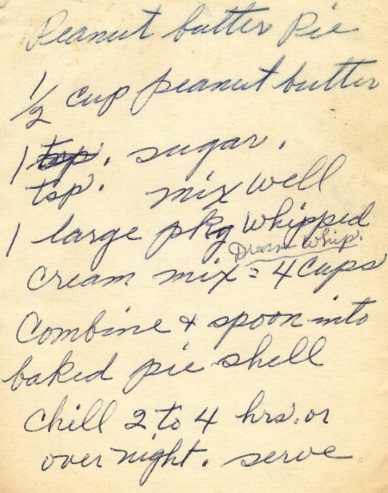 Peanut butter Pie
1/2 cup peanut butter
1 tsp. sugar.
tsp. mix well
1 large pkg whipped
Dream Whip.
cream mix = 4 cups
Combine & spoon into
baked pie shell
Chill 2 to 4 hrs. or
over night. serve